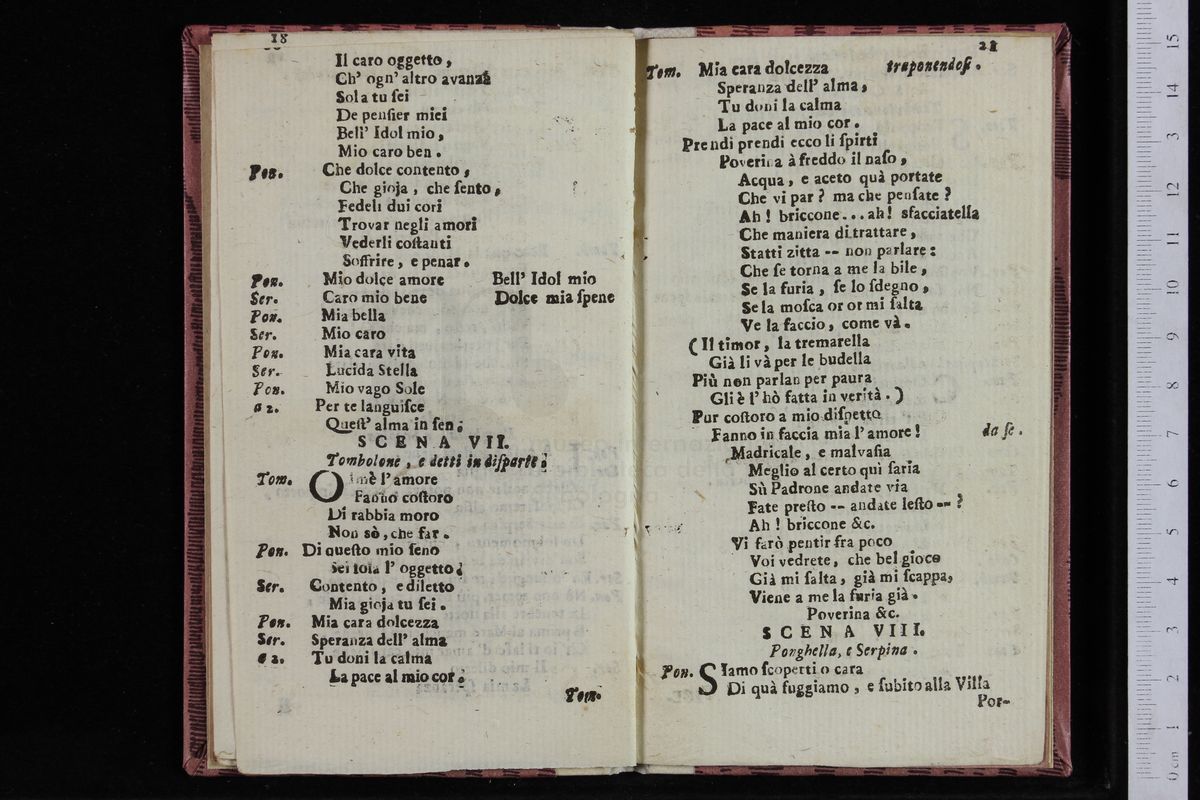 18
Il caro oggetto,
Ch' ogn' altro avanza
Sola tu ſei
De penſier miei
Bell' Idol mio,
Mio caro ben.
Pon. Che dolce contento,
Che gioja, che ſento,
Fedeli dui cori
Trovar negli amori
Vederli coſtanti
Soffrire, e penar.
Pon. Mio dolce amore Bell' Idol mio
Ser. Caro mio bene Dolce mia ſpene
Pon. Mia bella
Ser. Mio caro
Pon. Mia cara vita
Ser. Lucida Stella
Pon. Mio vago Sole
a 2. Per te languiſce
Queſt' alma in ſen.
SCENA VII.
Tombolone, e detti in diſparte.
Tom. Oimè l' amore
Fanno coſtoro
Di rabbia moro
Non sò, che far.
Pon. Di queſto mio ſeno
Sei ſola l' oggetto.
Ser. Contento, e diletto
Mia gioja tu ſei.
Pon. Mia cara dolcezza
Ser. Speranza dell' alma
a 2. Tu doni la calma
La pace al mio cor.
Tom.
21
Tom. Mia cara dolcezza traponendoſi.
Speranza dell' alma,
Tu doni la calma
La pace al mio cor.
Prendi prendi ecco li ſpirti
Poverina à freddo il naſo,
Acqua, e aceto quà portate
Che vi par? ma che penſate?
Ah! briccone... ah! sfacciatella
Che maniera di trattare,
Statti zitta -- non parlare:
Che ſe torna a me la bile,
Se la furia, ſe lo ſdegno,
Se la moſca or or mi ſalta
Ve la faccio, come và.
(Il timor, la tremarella
Già li và per le budella
Più non parlan per paura
Gli è l' hò fatta in verità.)
Pur coſtoro a mio diſpetto
Fanno in faccia mia l' amore! da ſe.
Madricale, e malvaſia
Meglio al certo quì ſaria
Sù Padrone andate via
Fate preſto -- andate leſto --?
Ah! briccone &c.
Vi farò pentir fra poco
Voi vedrete, che bel gioco
Già mi ſalta, già mi ſcappa,
Viene a me la furia già.
Poverina &c.
SCENA VIII.
Porghella, e Serpina.
Pon. Siamo ſcoperti o cara
Di quà fuggiamo, e ſubito alla Villa
Por-